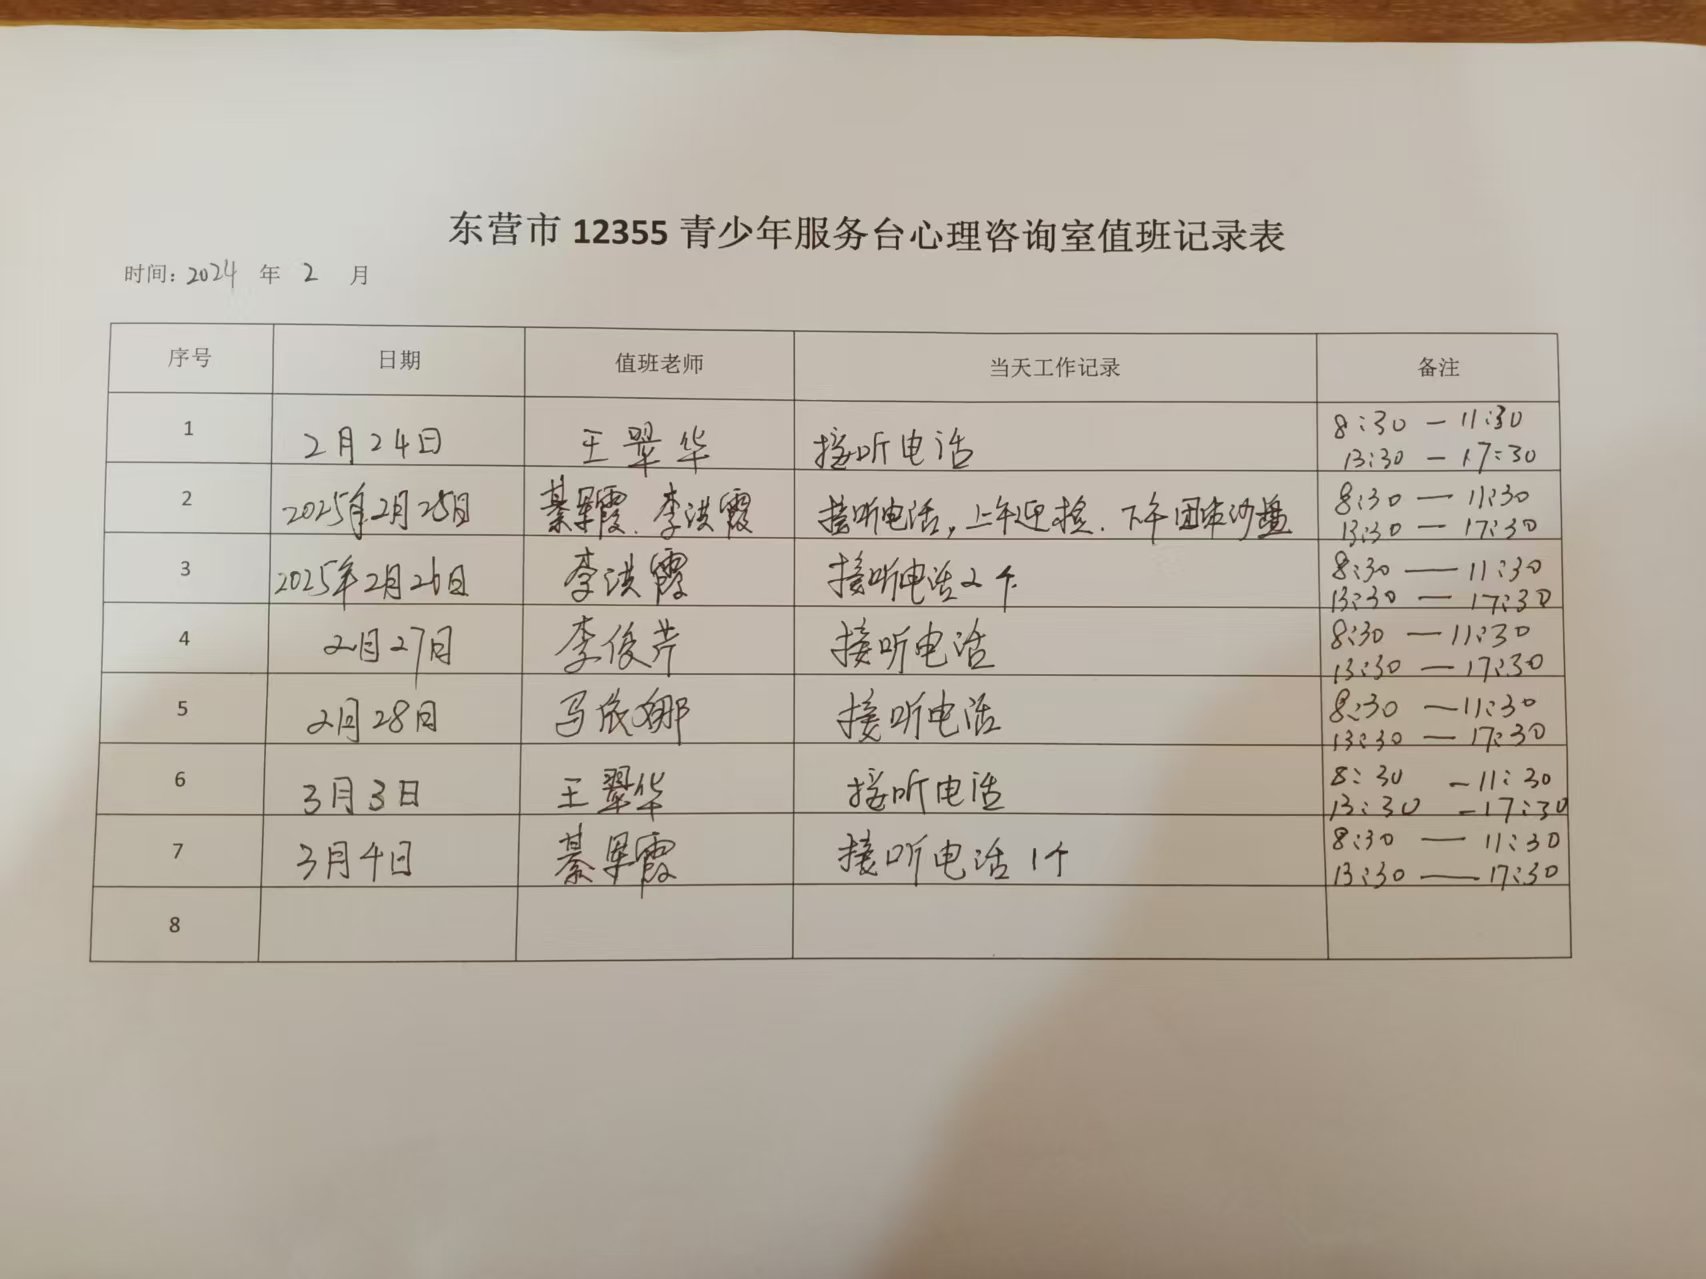 东营市 12355 青少年服务台心理咨询室值班记录表
时间: 2024 年 2 月
序号 日期 值班老师 当天工作记录 备注
1 2月24日 王翠华 接听电话 8:30 — 11:30
13:30 — 17:30
2 2025年2月25日 綦军霞、李洪霞 接听电话,上午迎检、下午团体沙盘 8:30 — 11:30
13:30 — 17:30
3 2025年2月26日 李洪霞 接听电话2个 8:30 — 11:30
13:30 — 17:30
4 2月27日 李俊芹 接听电话 8:30 — 11:30
13:30 — 17:30
5 2月28日 马依娜 接听电话 8:30 — 11:30
13:30 — 17:30
6 3月3日 王翠华 接听电话 8:30 — 11:30
13:30 — 17:30
7 3月4日 綦军霞 接听电话1个 8:30 — 11:30
13:30 — 17:30
8